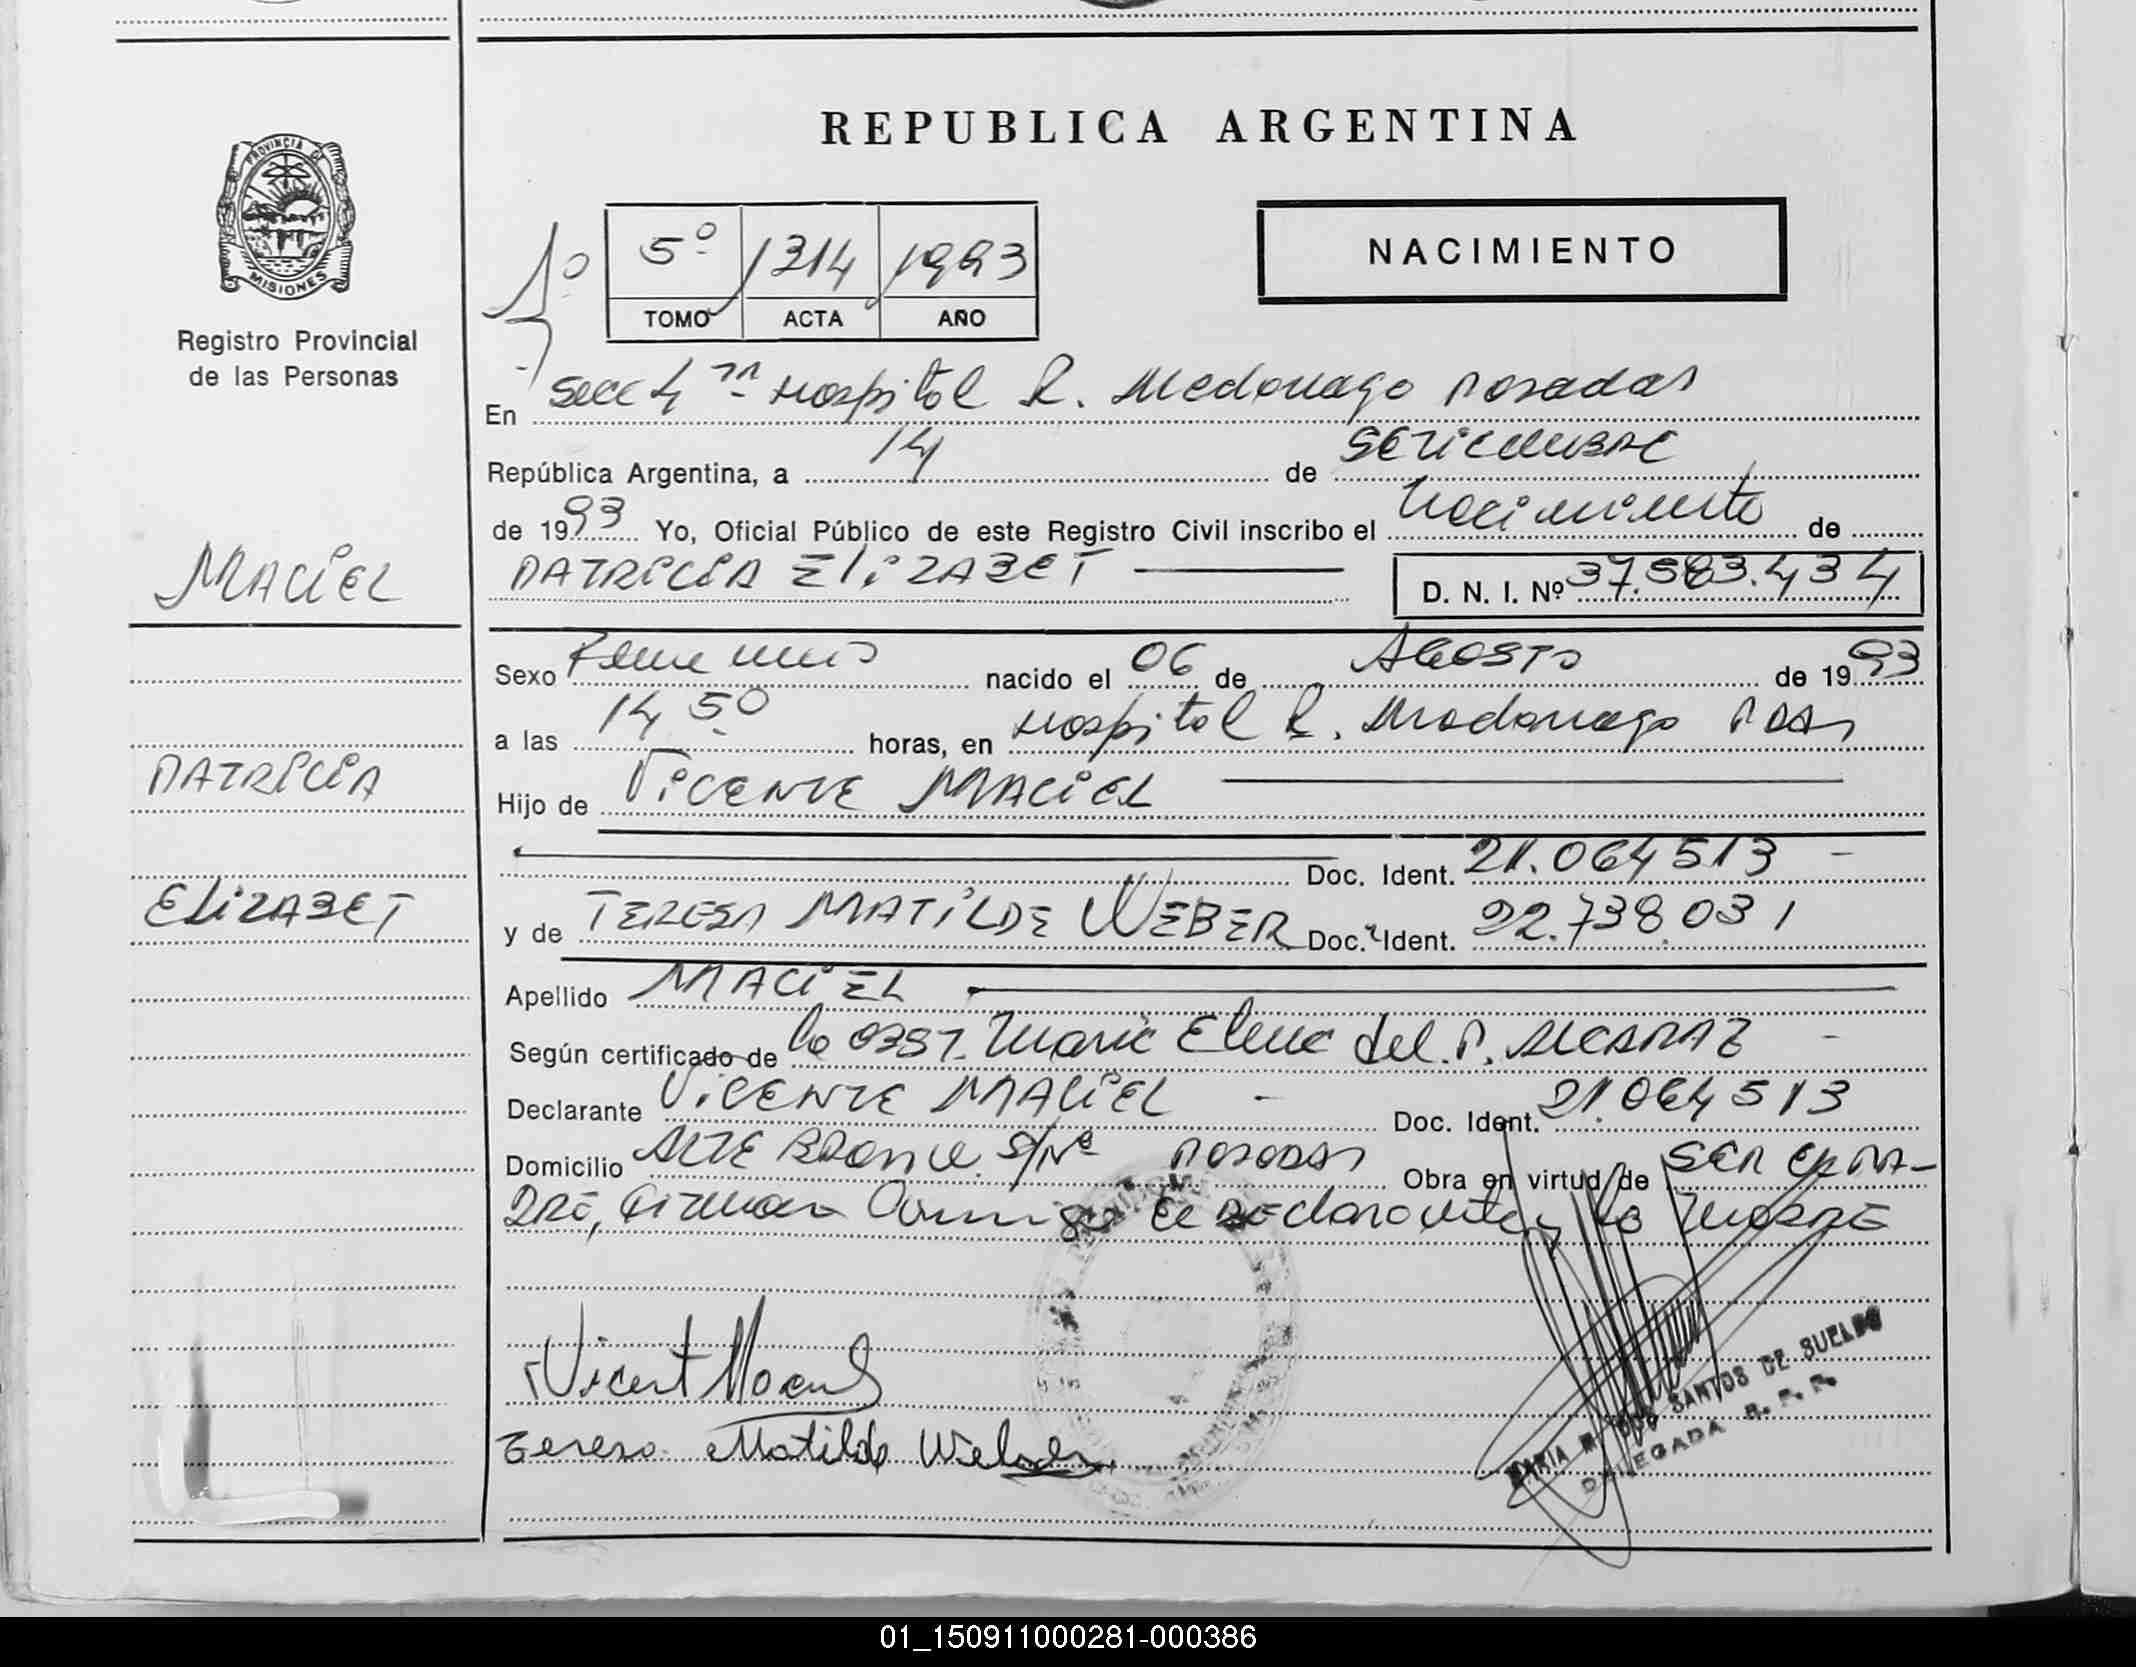 REPUBLICA ARGENTINA
PROVINCIA DE
MISIONES
Registro Provincial
de las Personas
1º
5º 1314 1993
TOMO ACTA AÑO
NACIMIENTO
En Secc 4ta Hospital R. Madariaga Posadas
República Argentina, a 14 de SETIEMBRE
de 1993 Yo, Oficial Público de este Registro Civil inscribo el Nacimiento de
PATRICIA ElizABET
D. N. I. Nº 37.583.434
MACIEL
PATRICIA
ElizABET
Sexo Femenino nacido el 06 de AGOSTO de 1993
a las 14 50 horas, en Hospital R. Madariaga Pdas
Hijo de VICENTE MACIEL
Doc. Ident. 21.064513 -
y de TERESA MATILDE WEBER Doc. Ident. 22.738.031
Apellido MACIEL
Según certificado de la OBST. Maria Elena del. P. ALCARAZ -
Declarante VICENTE MACIEL - Doc. Ident. 21.064513
Domicilio ALTE BROWN S/Nº POSADAS Obra en virtud de SER EL PA-
DRE, FIRMAN Conmigo El DEclarante y la MADRE
Vicent Maciel
Teresa Matilde Weber
MARIA M. DOS SANTOS DE SUELDO
DELEGADA R. P. P.
01_150911000281-000386